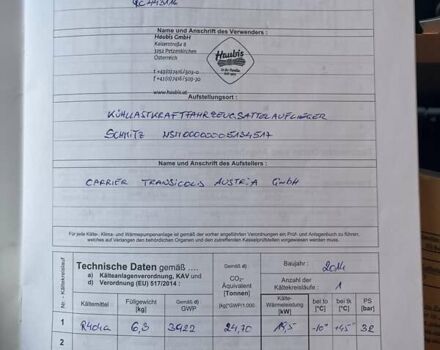 Name und Anschrift des Verwenders :
Haubis GmbH
Kaiserstraße 8
3252 Petzenkirchen
Österreich
Haubis
t +43(0)7416/503-0
f +43(0)7416/503-30
www.haubis.at
Aufstellungsort :
KÜHLLASTKRAFTFAHRZEUG SATTELAUFLIEGER
SCHMITZ
Name und Anschrift des Aufstellers :
CARRIER TRANSICOLD AUSTRIA GmbH
Für jede Kälte-, Klima- und Wärmepumpenanlage ist gemäß der vorher angeführten Verordnungen ein Prüf- und Anlagenbuch zu führen,
welches auf Verlangen den behördlichen Organen und den zutreffenden Kesselprüfstellen vorgewiesen werden muss.
Nr. - Kältekreislauf
Technische Daten gemäß ....
a) Kälteanlagenverordnung, KAV und
d) Verordnung (EU) 517/2014 :
Gemäß d)
CO2-
Äquivalent
[Tonnen]
Baujahr : 2014
Anzahl der
Kältekreisläufe : 1
Kältemittel
Füllgewicht
[kg]
Gemäß d)
GWP
[kg]*GWP/1.000
Kälte-
Wärmeleistung
[kW]
bei to
[°C]
bei tk
[°C]
PS
[bar]
1 R404a 6,3 3922 24,70 -10° +45°
2